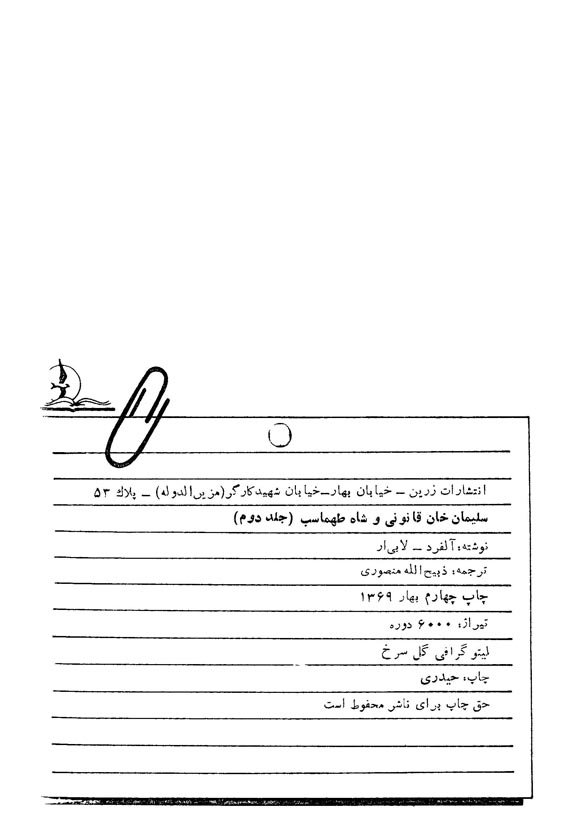 انتشارات زرین – خیابان بهار–خیابان شهیدکارگر(مزین‌الدوله) – پلاك ۵۳
سلیمان خان قانونی و شاه طهماسب (جلد دوم)
نوشته: آلفرد – لابی‌ار
ترجمه: ذبیح‌الله منصوری
چاپ چهارم بهار ۱۳۶۹
تیراژ: ۶۰۰۰ دوره
لیتوگرافی گل سرخ
چاپ: حیدری
حق چاپ برای ناشر محفوظ است